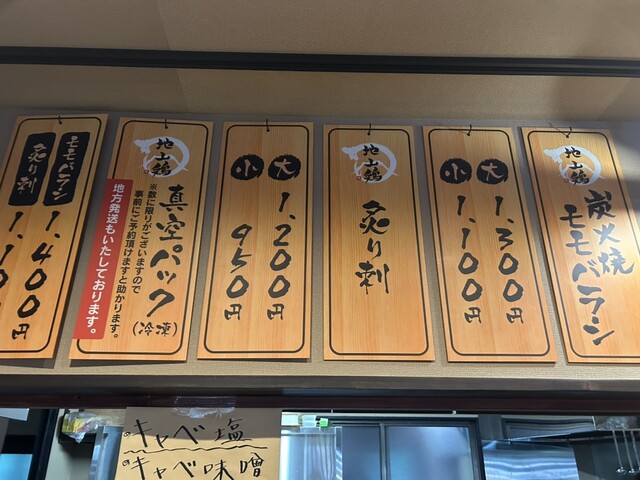 地鶏
炭火焼
モモバラシ
大 1,300円
小 1,100円
地鶏
炙り刺
大 1,200円
小 950円
地鶏
真空パック
(冷凍)
※数に限りがございますので
事前にご予約頂けますと助かります。
地方発送もいたしております。
モモバラシ 1,400円
炙り刺 1,10
キャベ塩
キャベ味噌